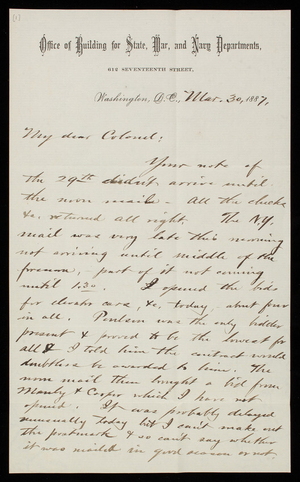 Office of Building for State, War, and Navy Departments,
612 SEVENTEENTH STREET,
Washington, D.C., Mar. 30, 1887,
My dear Colonel:
Your note of
the 29th didn't arrive until
the noon mail. All the checks
&c. returned all right. The N.Y.
mail was very late this morning
not arriving until middle of the
forenoon, part of it not coming
until 1.30. I opened the bids
for elevator cars, &c, today, about four
in all. Poulson was the only bidder
present & proved to be the lowest for
all & I told him the contract would
doubtless be awarded to him. The
noon mail then brought a bid from
Manly & Cooper which I have not
opened. It was probably delayed
unusually today but I can't make out
the postmark & so can't say whether
it was mailed in good season or not.